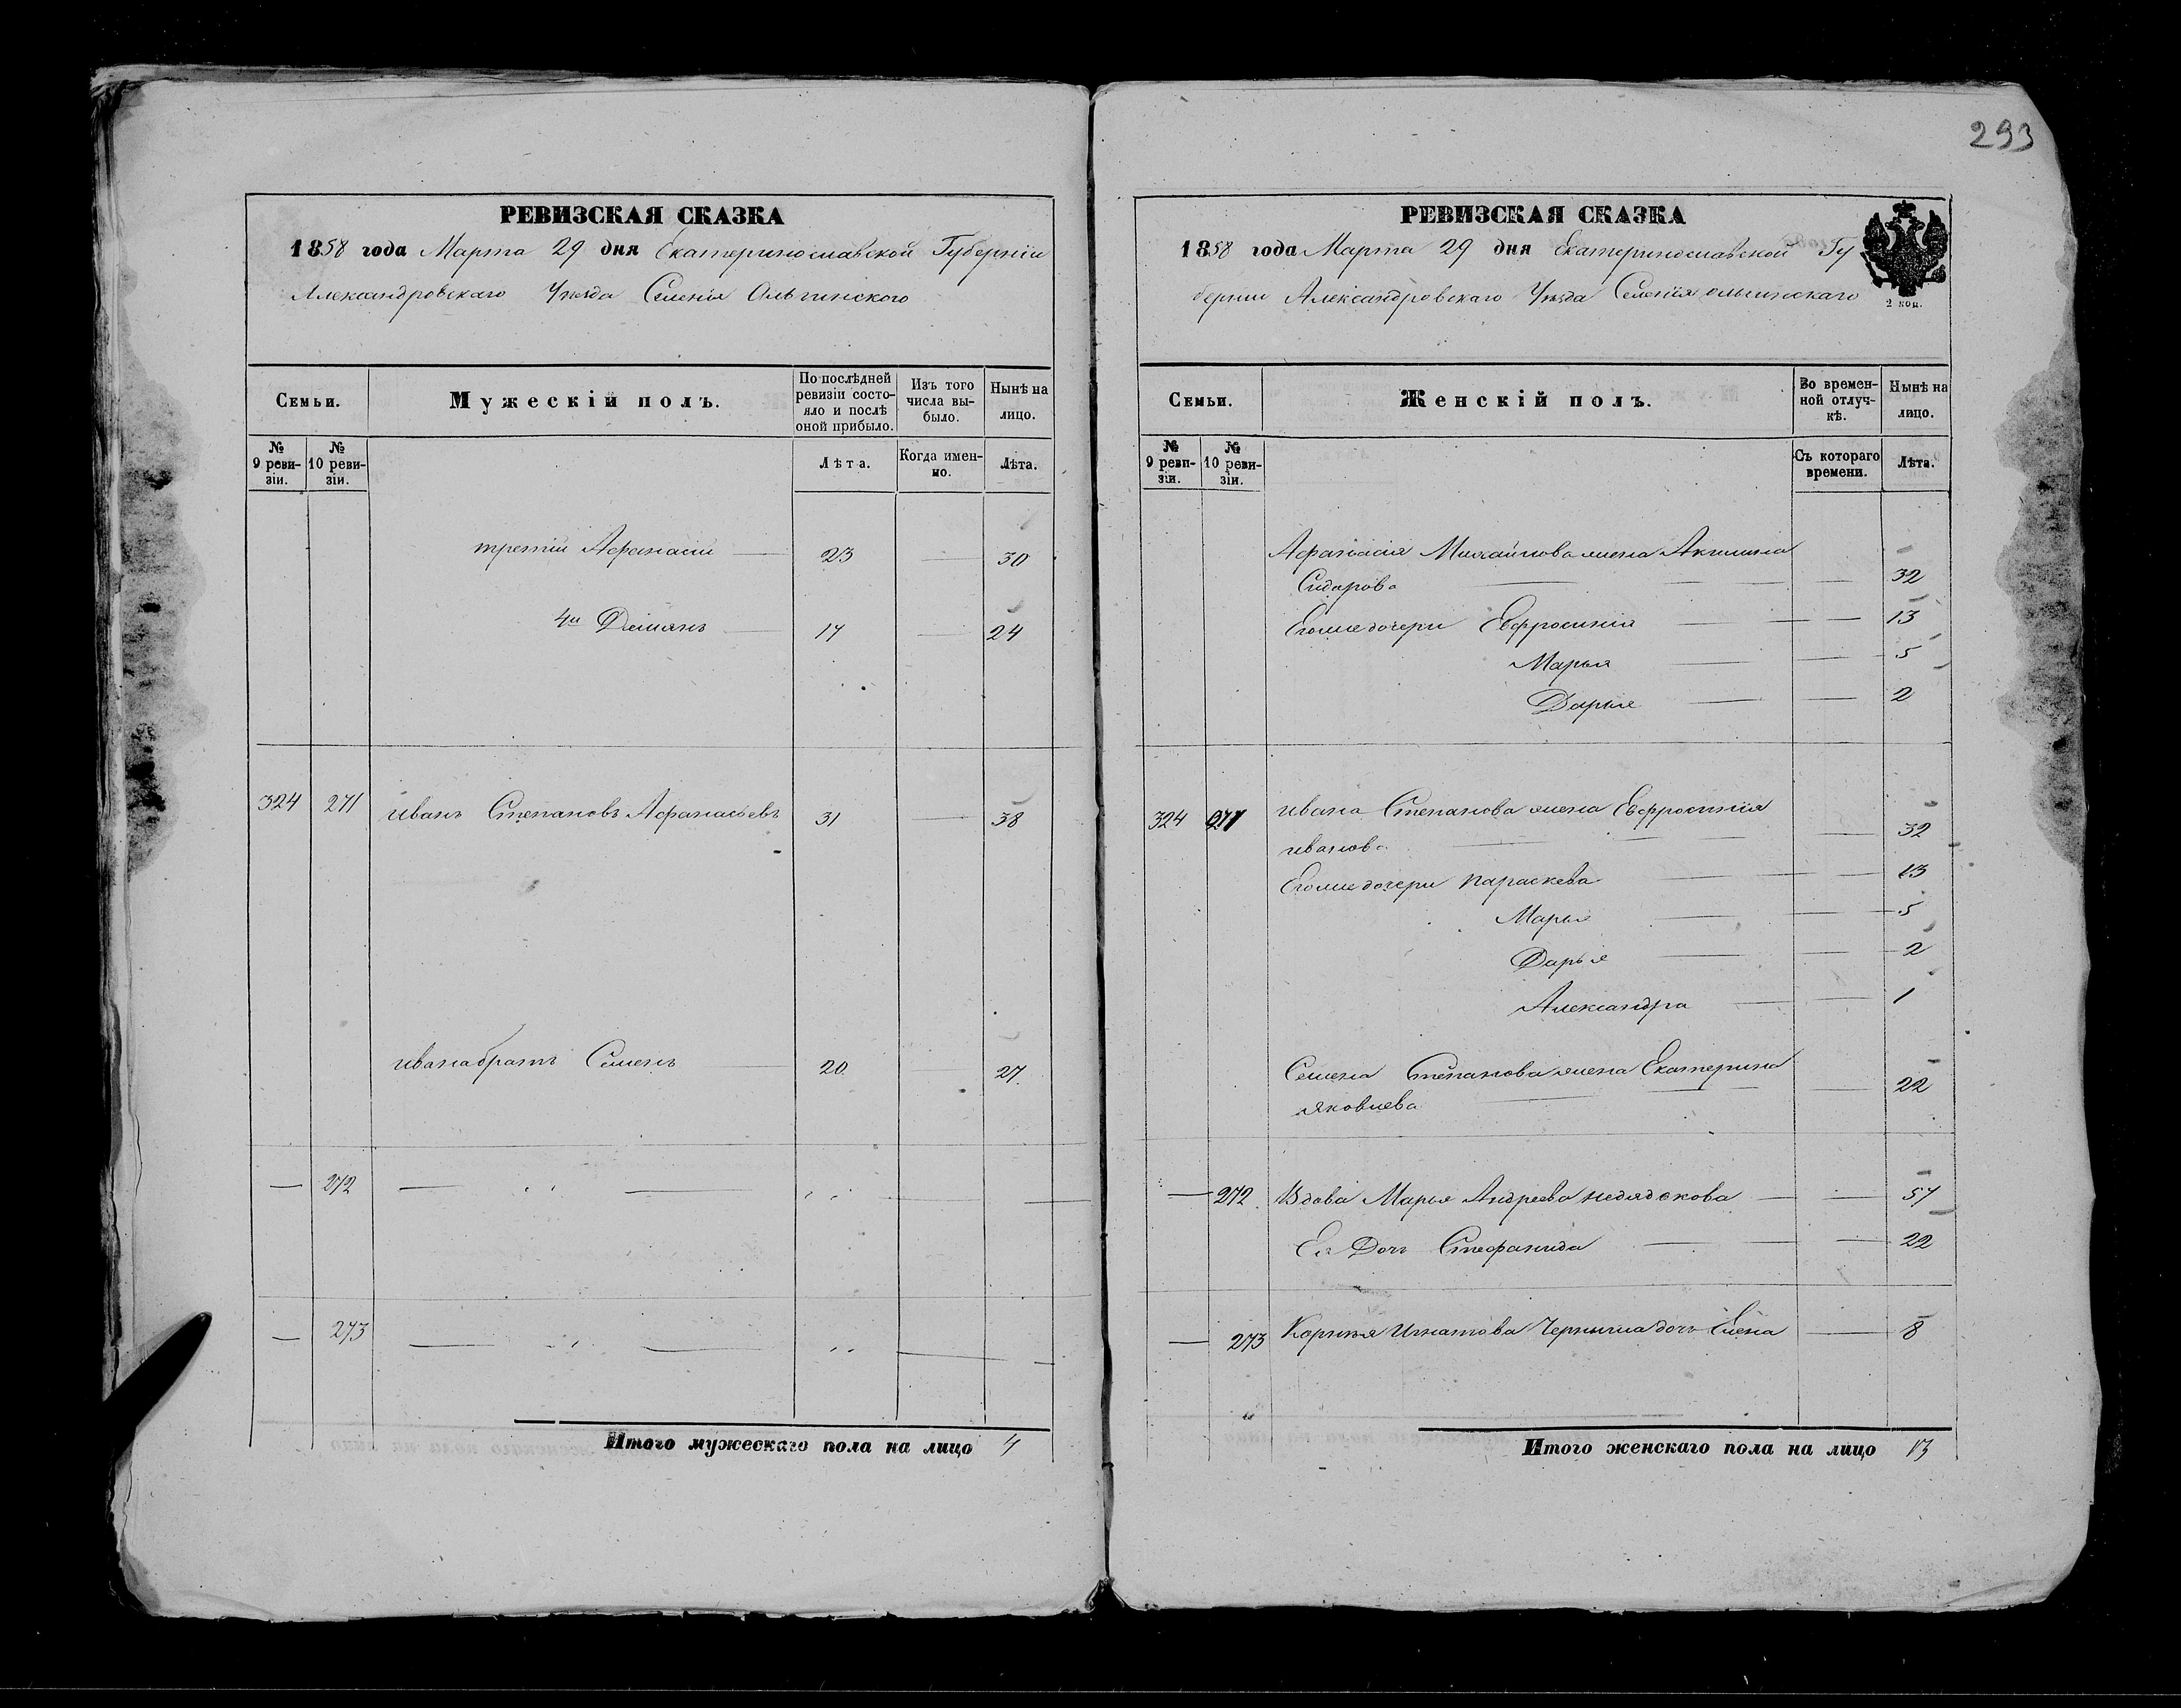 293
РЕВИЗСКАЯ СКАЗКА
1858 года Марта 29 дня Екатеринославской Губерніи
Александровскаго Уѣзда Селенія Ольгинского
Семьи.
Мужескій полъ.
По послѣдней ревизіи состояло и послѣ оной прибыло.
Изъ того числа выбыло.
Нынѣ на лицо.
№ 9 ревизіи.
№ 10 ревизіи.
Лѣта.
Когда именно.
Лѣта.
третій Афанасій 23 — 30
4й Демянъ 17 — 24
324 271 Иванъ Степановъ Афанасьевъ 31 — 38
Ивана братъ Семенъ 20 27
— 272 —
— 273 —
Итого мужескаго пола на лицо 4
РЕВИЗСКАЯ СКАЗКА
1858 года Марта 29 дня Екатеринославской Гу
берніи Александровскаго Уѣзда Селенія Ольгинскаго
2 коп.
Семьи.
Женскій полъ.
Во временной отлучкѣ.
Нынѣ на лицо.
№ 9 ревизіи.
№ 10 ревизіи.
Съ котораго времени.
Лѣта.
Афанасія Михайлова жена Акилина
Сидорова — 32
Егоже дочери Евфросинія — 13
Марья — 5
Дарья — 2
324 271 Ивана Степанова жена Евфросинія
Иванова — 32
Егоже дочери Параскева — 13
Марья — 5
Дарья — 2
Александра — 1
Семена Степанова жена Екатерина
Яковлева — 22
— 272 Вдова Марья Андреева — 57
Ея Дочь Стефанида — 22
— 273 Корнѣя Игнатова Черныша дочь Елена — 8
Итого женскаго пола на лицо 13